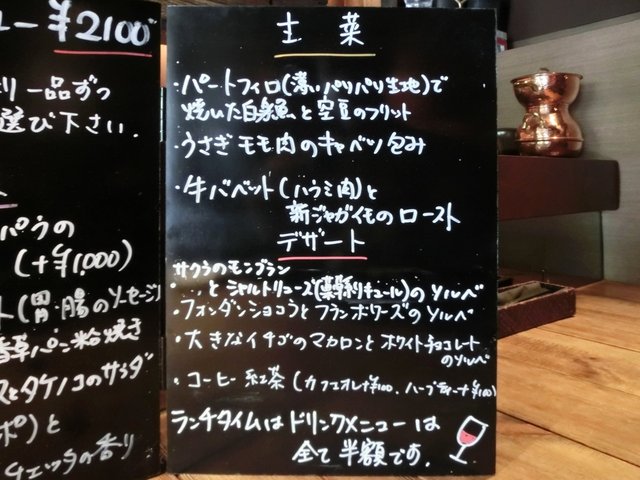 ー ¥2100
り一品ずつ
選び下さい.
パうの
(+¥1,000)
ト(胃・腸のソーセージ)
香草パン粉焼き
スとタケノコのサラダ
ポ)と
チェッタの香り
主菜
・パートフィロ(薄いパリパリ生地)で
焼いた白身魚と空豆のフリット
・うさぎモモ肉のキャベツ包み
・牛バベット(ハラミ肉)と
新ジャガイモのロースト
デザート
サクラのモンブラン
・とシャルトリューズ(薬草系リキュール)のソルベ
・フォンダンショコラとフランボワーズのソルベ
・大きなイチゴのマカロンとホワイトチョコレート
のソルベ
・コーヒー 紅茶(カフェオレ+¥100、ハーブティー+¥100)
ランチタイムはドリンクメニューは
全て半額です.